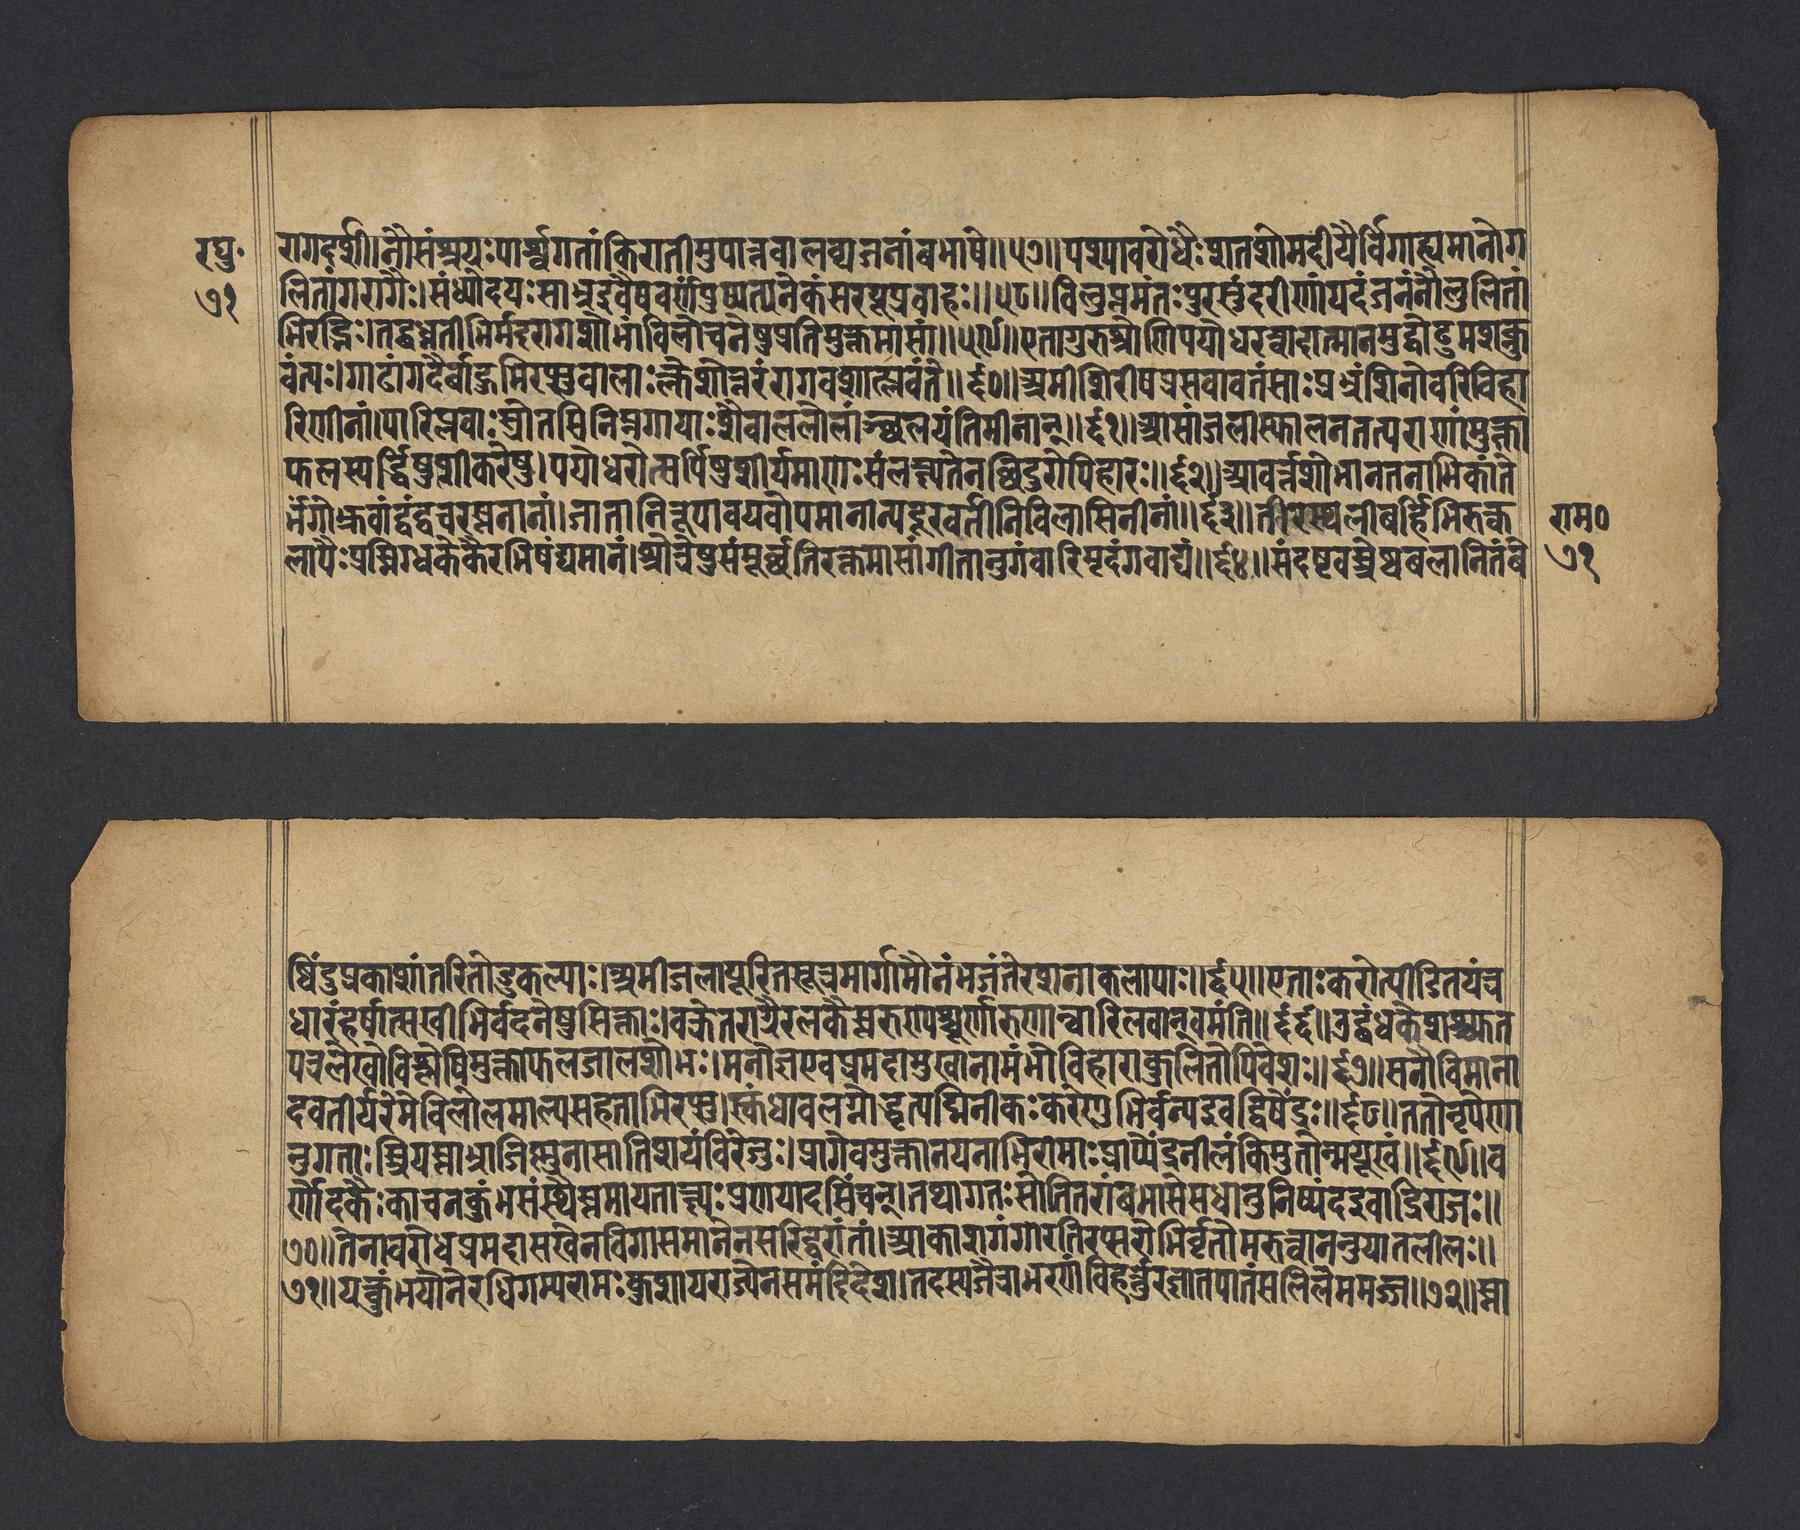 रघु॰
७१
रागदर्शी।नौसंश्रयःपार्श्वगतांकिरातीमुपात्तवालव्यजनांबभाषे॥५७॥पश्यावरोधैःशतशोमदीयैर्विगाह्यमानोग
लितांगरागैः।संध्योदयःसाभ्रइवैषवर्णंपुष्यत्यनेकंसरयूप्रवाहः॥५८॥विलुप्तमंतःपुरसुंदरीणांयदंजनंनौलुलिता
भिरद्भिः।तद्बध्नतीभिर्मदरागशोभांविलोचनेषुप्रतिमुक्तमासां॥५९॥एतागुरुश्रोणिपयोधरत्वादात्मानमुद्वोढुमशक्नु
वंत्यः।गाढांगदैर्बाहुभिरप्सुबालाःक्लेशोत्तरंरागवशात्प्लवंते॥६०॥अमीशिरीषप्रसवावतंसाःप्रभ्रंशिनोवारिविहा
रिणीनां।पारिप्लवाःस्रोतसिनिम्नगायाःशैवाललोलांश्छलयंतिमीनान्॥६१॥आसांजलास्फालनतत्पराणांमुक्ता
फलस्पर्द्धिषुशीकरेषु।पयोधरोत्सर्पिषुशीर्यमाणःसंलक्ष्यतेनच्छिदुरोपिहारः॥६२॥आवर्त्तशोभानतनाभिकांते
र्भंगोभ्रुवांद्वंद्वचरस्तनानां।जातानिरूपावयवोपमानान्यदूरवर्तीनिविलासिनीनां॥६३॥तीरस्थलीबर्हिभिरुत्क
लापैःप्रस्निग्धकेकैरभिनंद्यमानं।श्रोत्रेषुसंमूर्छतिरक्तमासांगीतानुगंवारिमृदंगवाद्यं॥६४॥संदष्टवस्त्रेष्वबलानितंबे
राम०
७१
ष्विंदुप्रकाशांतरितोडुकल्पाः।अमीजलापूरितसूत्रमार्गामौनंभजंतेरशनाकलापाः॥६५॥एताःकरोत्पीडितयंत्र
धारंहर्षात्सखीभिर्वदनेषुसिक्ताः।वक्रेतराग्रैरलकैस्तरुण्यश्चूर्णारुणान्वारिलवान्वमंति॥६६॥उद्बंधकेशश्च्युत
पत्रलेखोविश्लेषिमुक्ताफलजालशोभः।मनोज्ञएवप्रमदामुखानामंभोविहाराकुलितोपिवेशः॥६७॥सनौविमाना
दवतीर्यरेमेविलोलमाल्यसहताभिरप्सु।स्कंधावलग्नोद्धृतपद्मिनीकःकरेणुभिर्वन्यइवद्विपेंद्रः॥६८॥ततोनृपेणा
नुगताःस्त्रियस्ताभ्राजिष्णुनासातिशयंविरेजुः।प्रागेवमुक्तानयनाभिरामाःप्राप्येंद्रनीलंकिमुतोन्मयूखं॥६९॥व
र्णोदकैःकांचनकुंभसंस्थैस्तमायताक्ष्यःप्रणयादसिंचन्।तथागतःसोतितरांबभासेसधातुनिष्पंदइवाद्रिराजः॥
७०॥तेनावरोधप्रमदासखेनविगासमानेनसरिद्वरांतां।आकाशगंगारतिरप्सरोभिर्वृतोमरुत्वाननुयातलीलः॥
७१॥यत्कुंभयोनेरधिगम्यरामःकुशायराज्येनसमंदिदेश।तदस्यजैत्राभरणंविहर्त्तुरज्ञातपातंसलिलेममज्ज॥७२॥स्ना